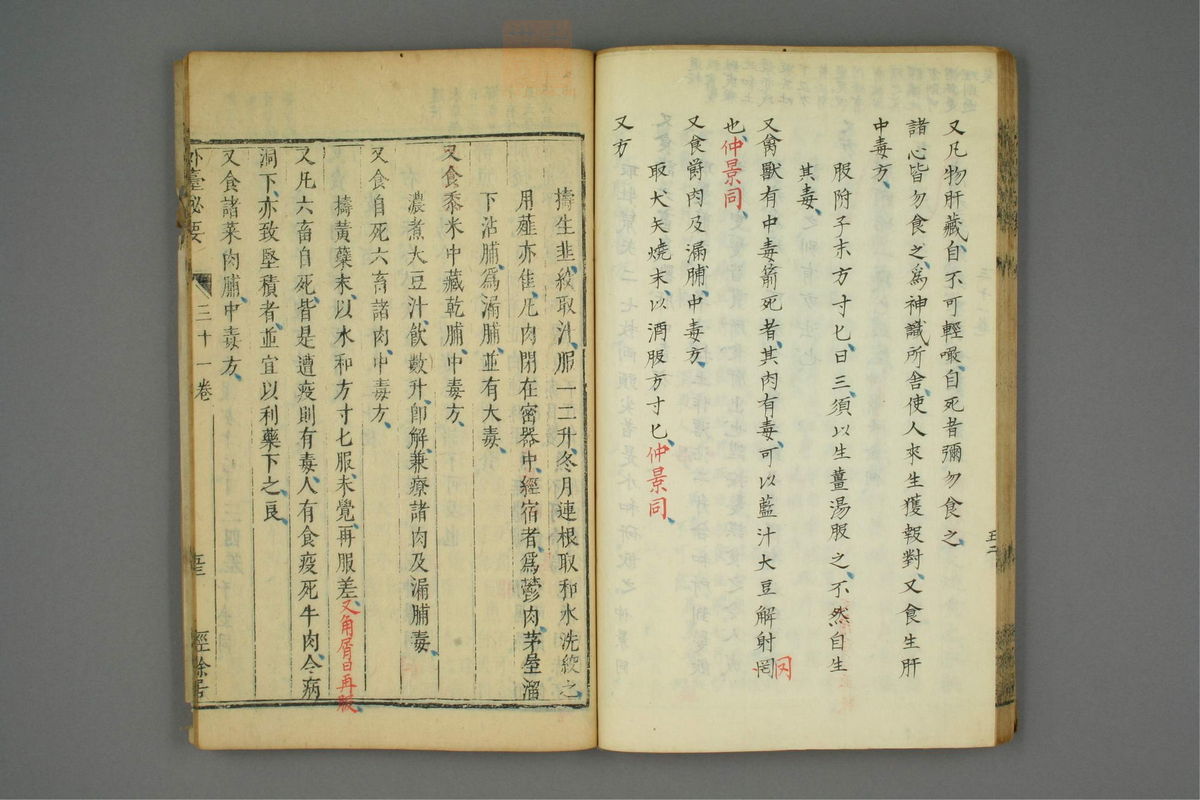 又凡物肝藏自不可輕噉自死者彌勿食之
諸心皆勿食之為神識所舍使人來生獲報對又食生肝
中毒方
服附子末方寸匕日三須以生薑湯服之不然自生
其毒
又禽獸有中毒箭死者其肉有毒可以藍汁大豆解射罔
也仲景同
又食爵肉及漏脯中毒方
取犬矢燒末以酒服方寸匕仲景同
又方
五十二
擣生韭絞取汁服一二升冬月連根取和水洗絞之
用薤亦佳凡肉閉在密器中經宿者為鬱肉茅屋溜
下沾脯為漏脯並有大毒
又食黍米中藏乾脯中毒方
濃煮大豆汁飲數升即解兼療諸肉及漏脯毒
又食自死六畜諸肉中毒方
擣黃蘗末以水和方寸匕服未覺再服差又角屑日再服
又凡六畜自死皆是遭疫則有毒人有食疫死牛肉令病
洞下亦致堅積者並宜以利藥下之良
又食諸菜肉脯中毒方
外臺秘要 三十一卷 經餘居